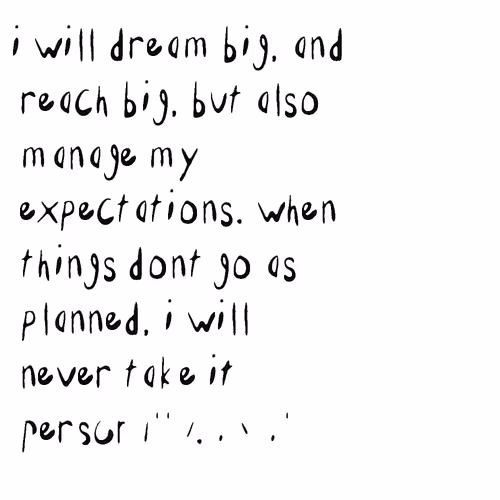 i will dream big. and
reach big. but also
manage my
expectations. when
things dont go as
planned. i will
never take it